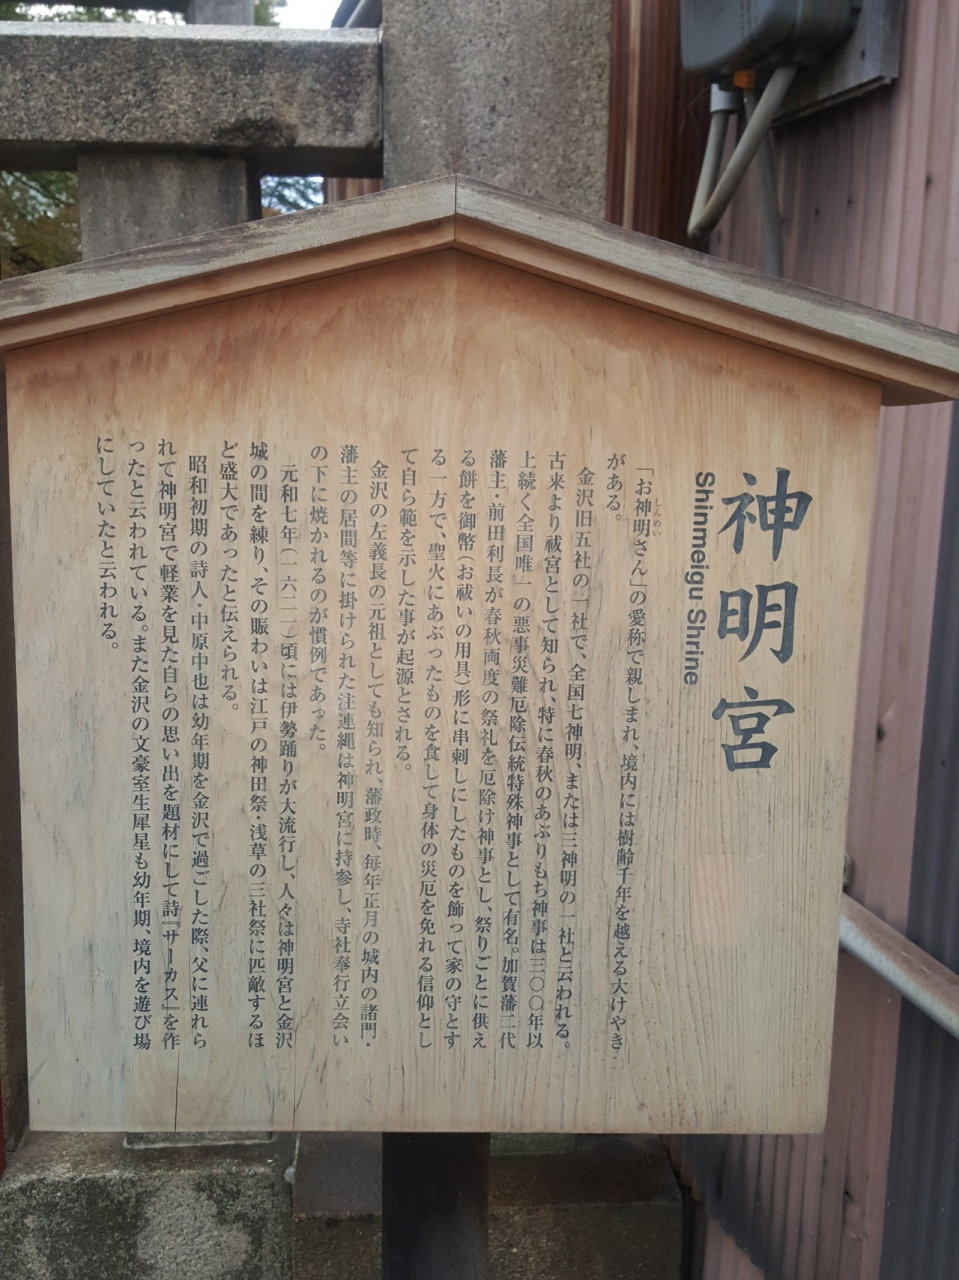 神明宮
Shinmeigu Shrine
「お神明さん」の愛称で親しまれ、境内には樹齢千年を越える大けやき
しんめい
がある。
金沢旧五社の一社で、全国七神明、または三神明の一社と云われる。
古来より祓宮として知られ、特に春秋のあぶりもち神事は三〇〇年以
上続く全国唯一の悪事災難厄除伝統特殊神事として有名。加賀藩二代
藩主・前田利長が春秋両度の祭礼を厄除け神事とし、祭りごとに供え
る餅を御幣（お祓いの用具）形に串刺しにしたものを飾って家の守とす
る一方で、聖火にあぶったものを食して身体の災厄を免れる信仰とし
て自ら範を示した事が起源とされる。
金沢の左義長の元祖としても知られ、藩政時、毎年正月の城内の諸門・
藩主の居間等に掛けられた注連縄は神明宮に持参し、寺社奉行立会い
の下に焼かれるのが慣例であった。
元和七年（一六二一）頃には伊勢踊りが大流行し、人々は神明宮と金沢
城の間を練り、その賑わいは江戸の神田祭・浅草の三社祭に匹敵するほ
ど盛大であったと伝えられる。
昭和初期の詩人・中原中也は幼年期を金沢で過ごした際、父に連れら
れて神明宮で軽業を見た自らの思い出を題材にして詩『サーカス』を作
ったと云われている。また金沢の文豪室生犀星も幼年期、境内を遊び場
にしていたと云われる。